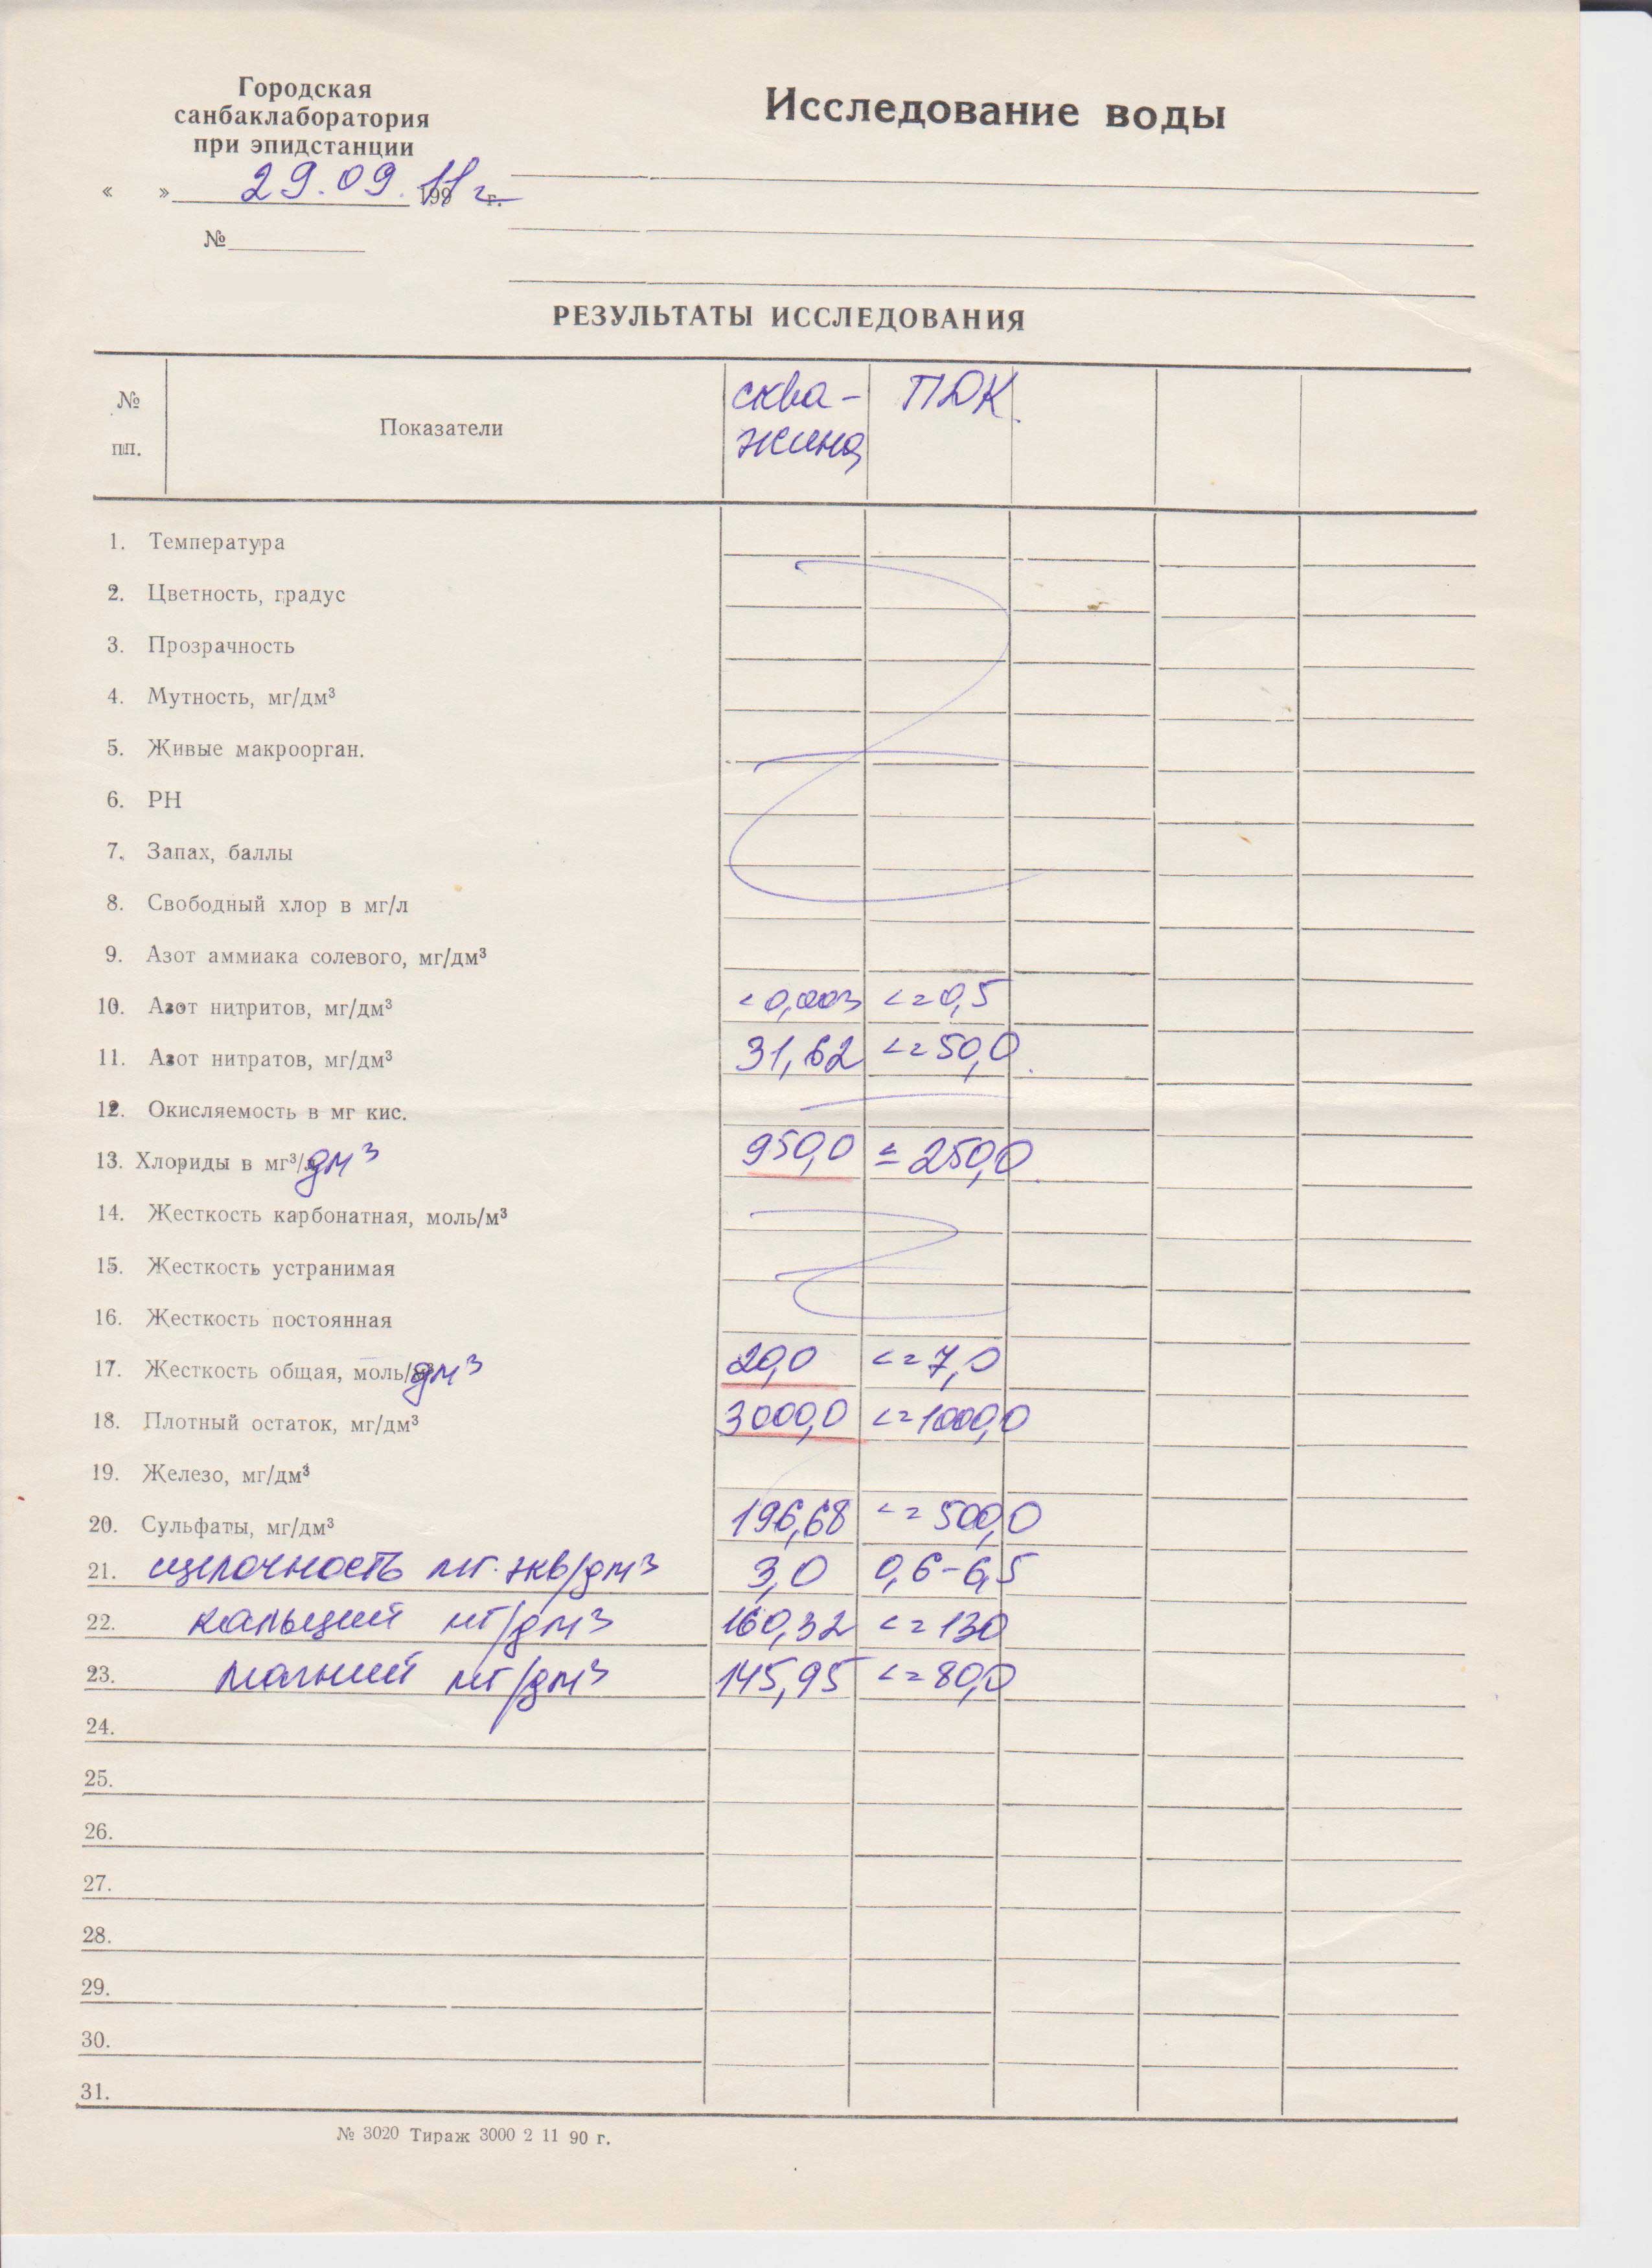 Городская
санбаклаборатория
при эпидстанции
Исследование воды
« » 29.09.11 г. 199 г.
№
РЕЗУЛЬТАТЫ ИССЛЕДОВАНИЯ
№ пп. Показатели сква- жина ПДК
1. Температура
2. Цветность, градус
3. Прозрачность
4. Мутность, мг/дм³
5. Живые макроорган.
6. РН
7. Запах, баллы
8. Свободный хлор в мг/л
9. Азот аммиака солевого, мг/дм³
10. Азот нитритов, мг/дм³ <0,003 <=0,5
11. Азот нитратов, мг/дм³ 31,62 <=50,0
12. Окисляемость в мг кис.
13. Хлориды в мг³/дм³ 950,0 ≤250,0
14. Жесткость карбонатная, моль/м³
15. Жесткость устранимая
16. Жесткость постоянная
17. Жесткость общая, моль/дм³ 20,0 <=7,0
18. Плотный остаток, мг/дм³ 3000,0 <=1000,0
19. Железо, мг/дм³
20. Сульфаты, мг/дм³ 196,68 <=500,0
21. щелочность мг.экв/дм³ 3,0 0,6-6,5
22. кальций мг/дм³ 160,32 <=130
23. магний мг/дм³ 145,95 <=80,0
24.
25.
26.
27.
28.
29.
30.
31.
№ 3020 Тираж 3000 2 11 90 г.